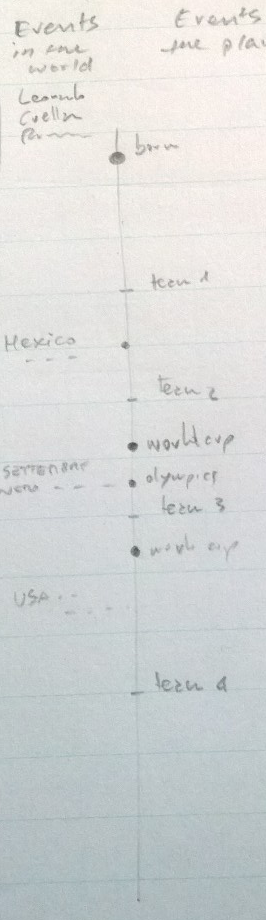 Events
in the
world
Events
the play
Leonardo
Cuellar
born
team 1
Mexico
team 2
world cup
SETTEMBRE
NERO
olympics
team 3
world cup
USA
team 4